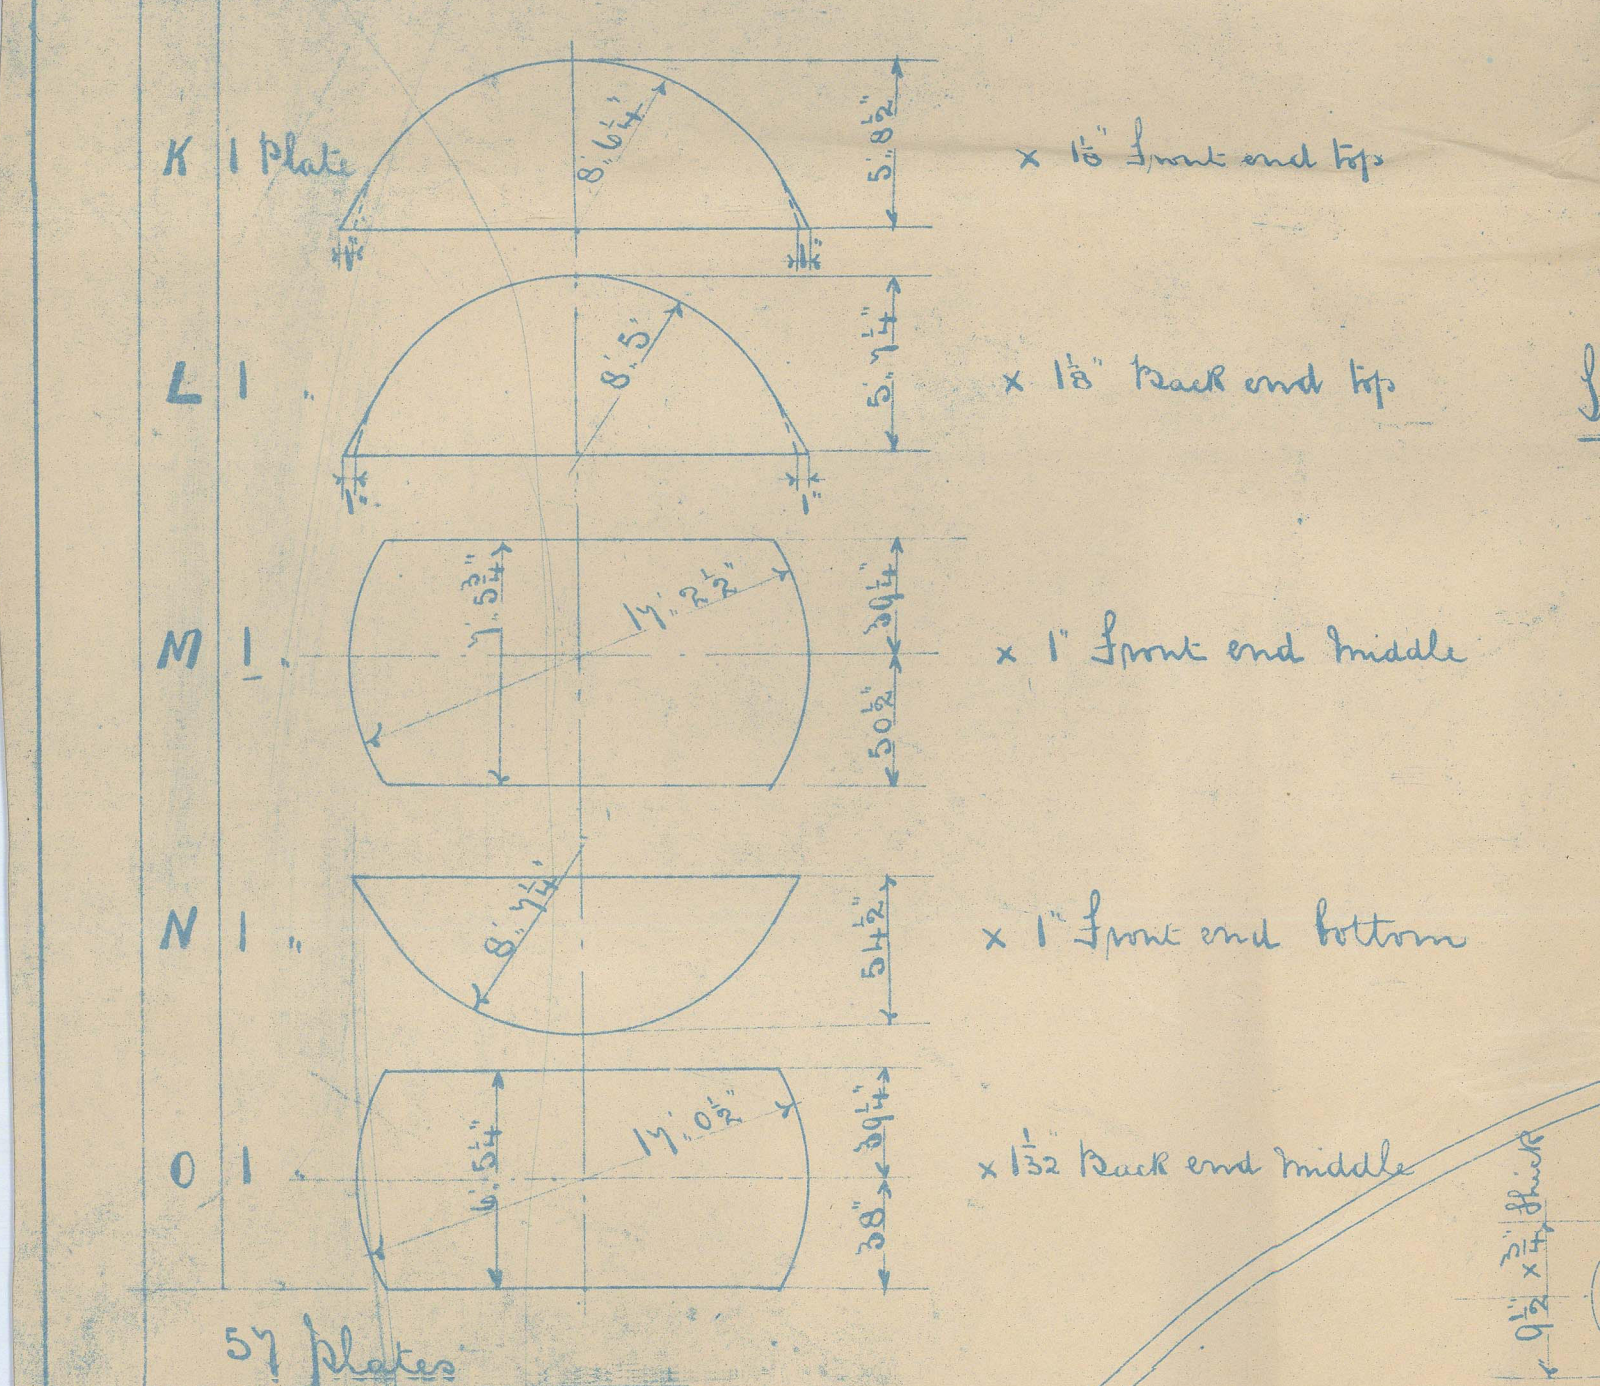 K 1 Plate 8'.6¼" 5'.8½" × 1⅛" Front end top
1" 1"
L 1 " 8'.5" 5'.7¼" × 1⅛" Back end top
1" 1"
M 1 " 7'.5¾" 17'.2½" 39¼" 50½" × 1" Front end Middle
N 1 " 8'.7¼" 54½" × 1" Front end bottom
O 1 " 6'.5¼" 17'.0½" 39¼" 38" × 1 1/32" Back end Middle
9½" × ¾" thick
57 plates